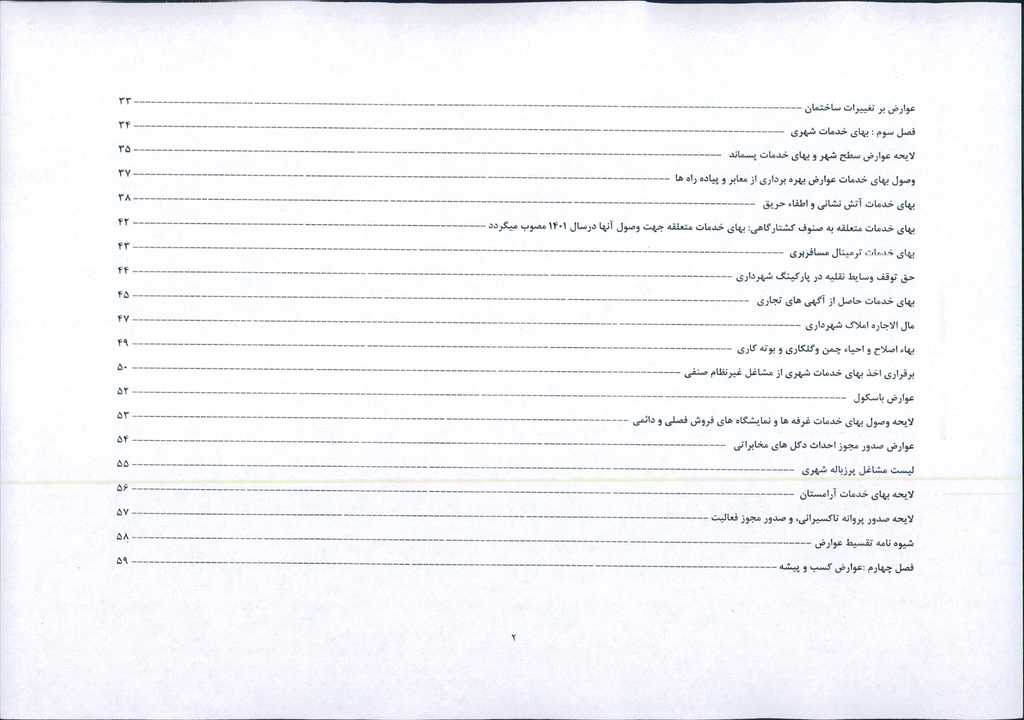 عوارض بر تغییرات ساختمان ---------- ۳۳
فصل سوم : بهای خدمات شهری ---------- ۳۴
لایحه عوارض سطح شهر و بهای خدمات پسماند ---------- ۳۵
وصول بهای خدمات عوارض بهره برداری از معابر و پیاده راه ها ---------- ۳۷
بهای خدمات آتش نشانی و اطفاء حریق ---------- ۳۸
بهای خدمات متعلقه به صنوف کشتارگاهی: بهای خدمات متعلقه جهت وصول آنها درسال ۱۴۰۱ مصوب میگردد ---------- ۴۲
بهای خدمات ترمینال مسافربری ---------- ۴۳
حق توقف وسایط نقلیه در پارکینگ شهرداری ---------- ۴۴
بهای خدمات حاصل از آگهی های تجاری ---------- ۴۵
مال الاجاره املاک شهرداری ---------- ۴۷
بهاء اصلاح و احیاء چمن وگلکاری و بوته کاری ---------- ۴۹
برقراری اخذ بهای خدمات شهری از مشاغل غیرنظام صنفی ---------- ۵۰
عوارض باسکول ---------- ۵۲
لایحه وصول بهای خدمات غرفه ها و نمایشگاه های فروش فصلی و دائمی ---------- ۵۳
عوارض صدور مجوز احداث دکل های مخابراتی ---------- ۵۴
لیست مشاغل پرزباله شهری ---------- ۵۵
لایحه بهای خدمات آرامستان ---------- ۵۶
لایحه صدور پروانه تاکسیرانی، و صدور مجوز فعالیت ---------- ۵۷
شیوه نامه تقسیط عوارض ---------- ۵۸
فصل چهارم :عوارض کسب و پیشه ---------- ۵۹
۲